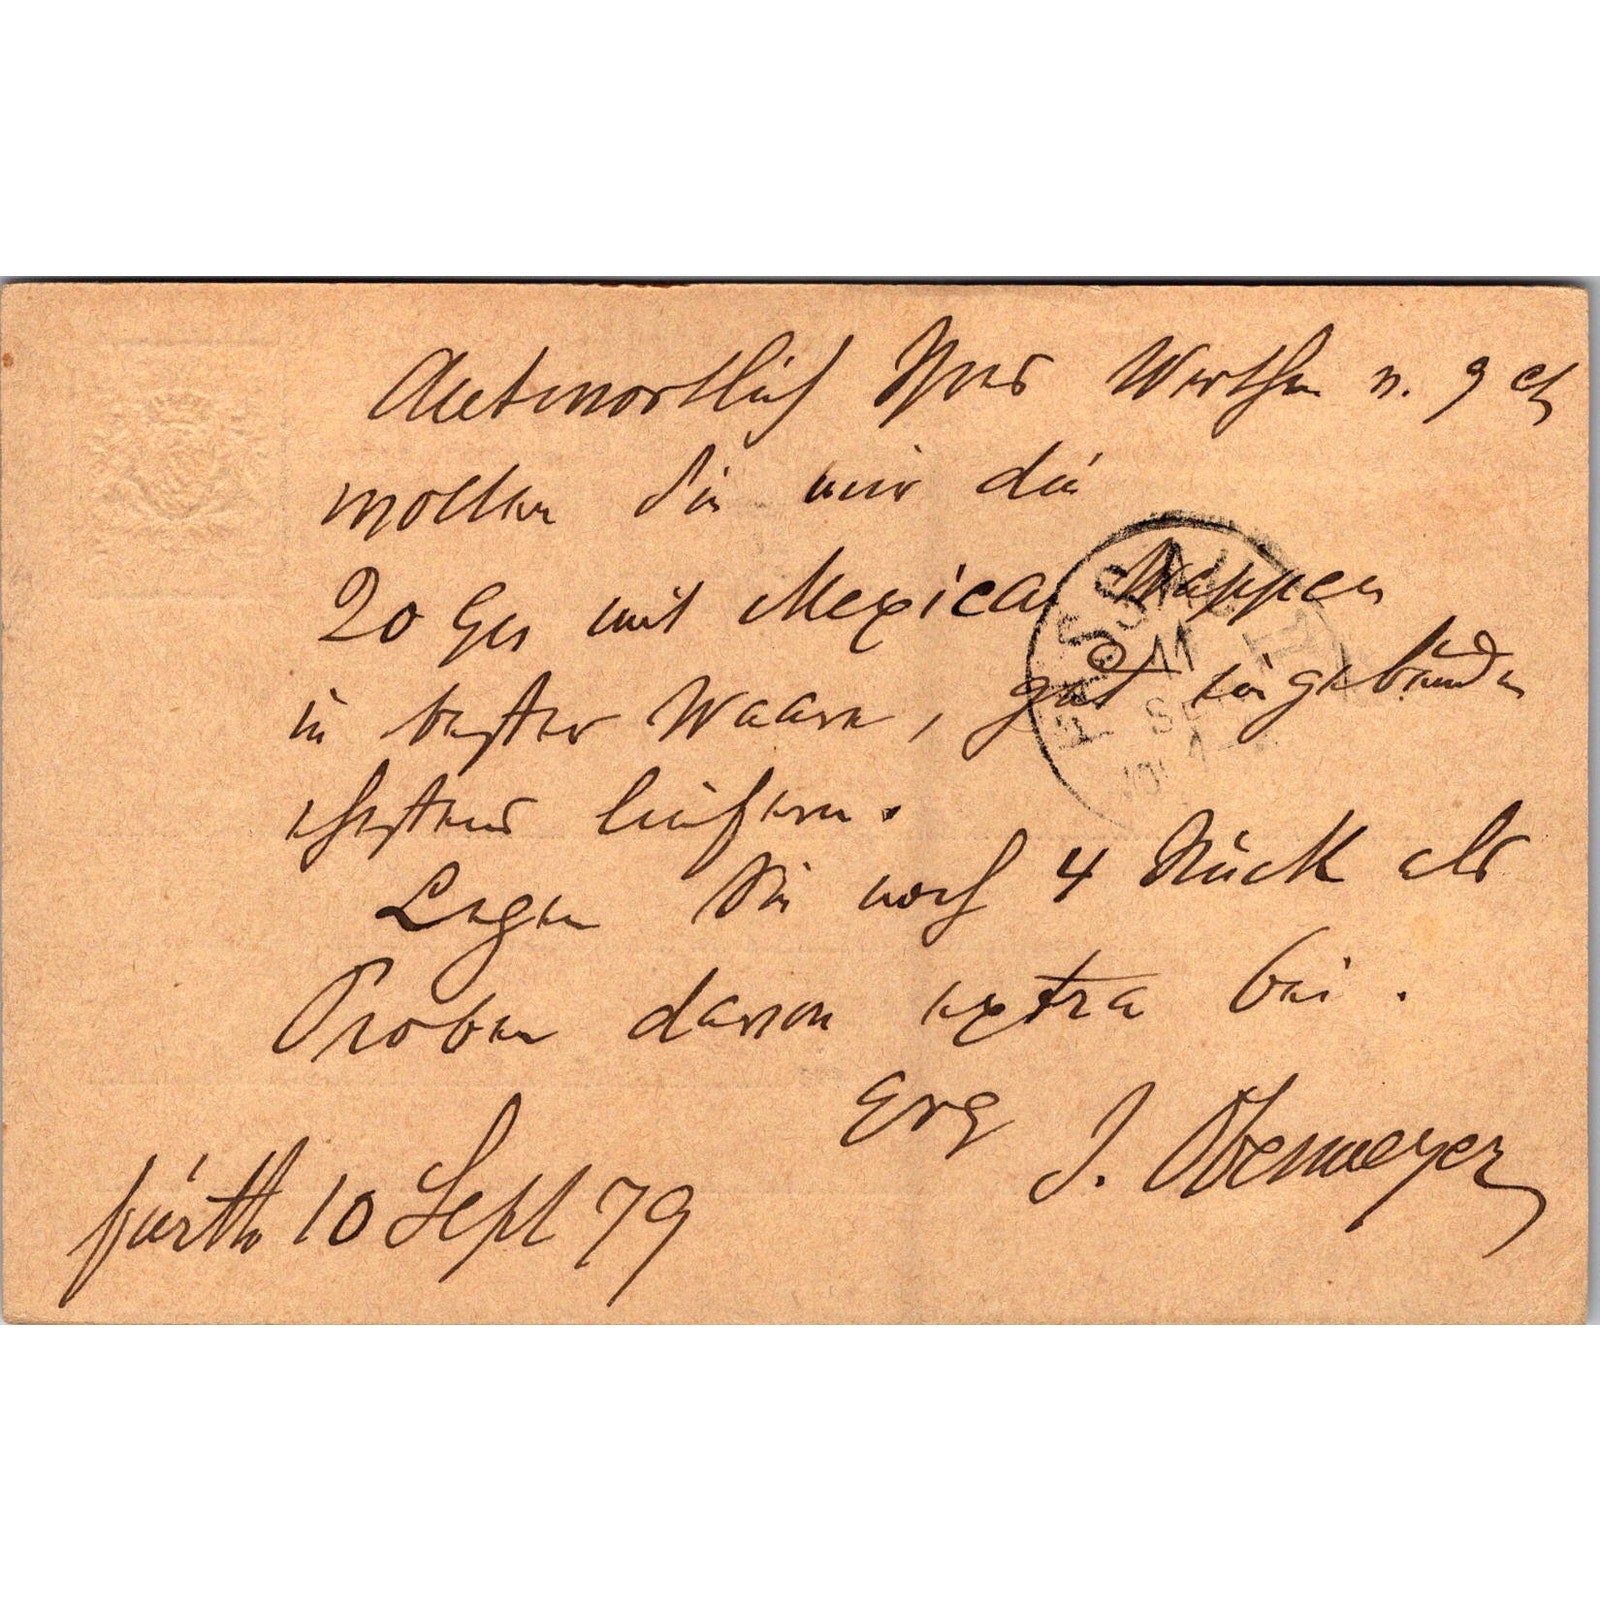 Antwortlich Ihres Werthen v. 9 ct
wollen Sie mir die
20 Gs mit Mexican Wappen
in bester Waare, gut eingebunden
ehestens liefern.
Legen Sie noch 4 Stück als
Proben davon extra bei.
Erg J. Obermeyer
fürth 10 Sept 79
PASSAU
11
SEP